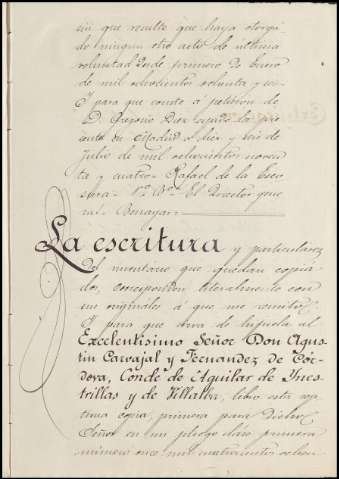 sin que resulte que haya otorga
do ningun otro acto de ultima
voluntad desde primero de Enero
de mil ochocientos sesenta y
Y para que conste á peticion de
D. Gregorio Diez expido la pre
sente en Madrid a diez y seis de
Julio de mil ochocientos noven
ta y cuatro = Rafael de la Esco
sura = Vº Bº El Director gene
ral =
La escritura y particulares
del inventario que quedan copia
do, corresponden literalmente con
sus originales á que me remito.
Y para que sirva de hijuela al
Excelentisimo Señor Don Agus
tin Carvajal y Fernandez de Cór
dova, Conde de Aguilar de Ines
trillas y de Villalva, libro esta sep
tima copia, primera para dicho
Señor en un pliego clase primera
número once mil cuatrocientos ochen